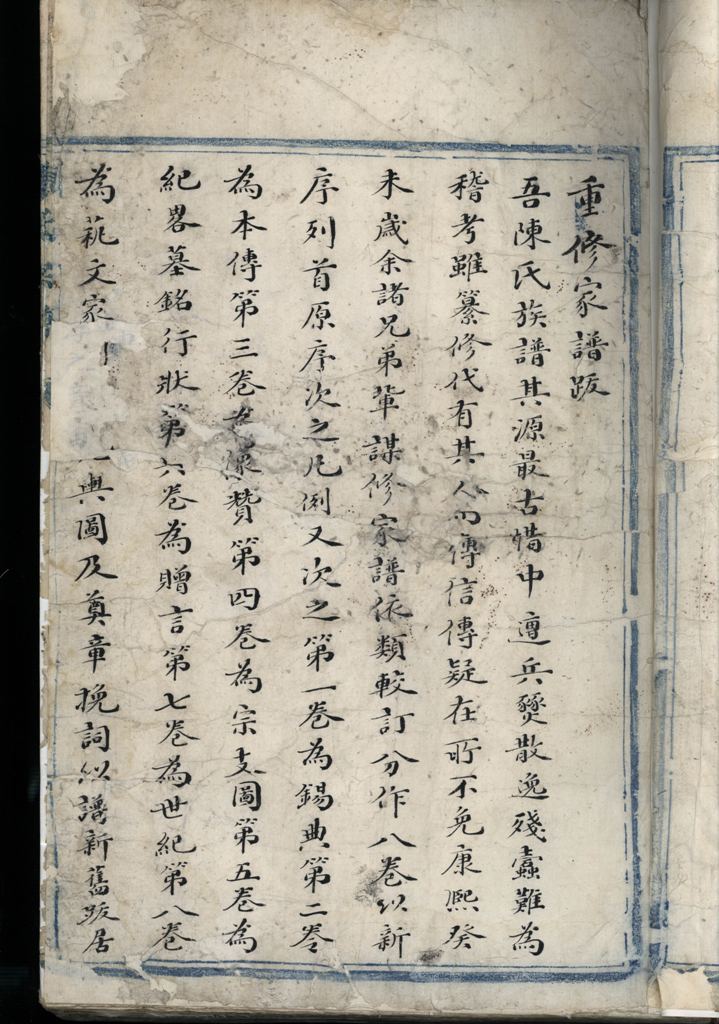 重修家譜跋
吾陳氏族譜其源最古惜中遭兵燹散逸殘蠹難為
稽考雖纂修代有其人而傳信傳疑在所不免康熙癸
未歲余諸兄弟輩謀修家譜依類較訂分作八卷以新
序列首原序次之凡例又次之第一卷為錫典第二卷
為本傳第三卷為像贊第四卷為宗支圖第五卷為
紀畧墓銘行狀第六卷為贈言第七卷為世紀第八卷
為蓺文家 輿圖及奠章挽詞以譜新舊跋居